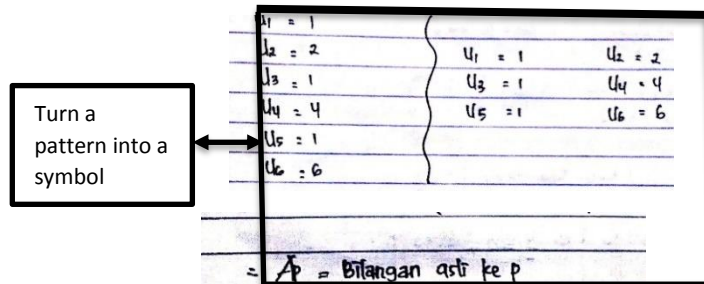 Turn a
pattern into a
symbol
U1 = 1
U2 = 2
U3 = 1
U4 = 4
U5 = 1
U6 = 6
U1 = 1 U2 = 2
U3 = 1 U4 = 4
U5 = 1 U6 = 6
= Ap = Bilangan asli ke p